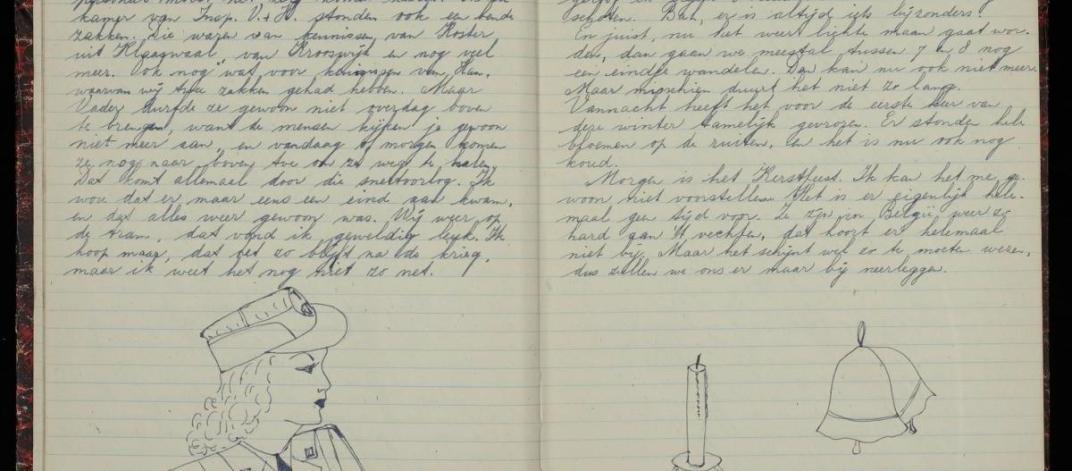 kamer van Insp. V. + H. stonden ook een tiende
zakken. Die waren van kennissen, van Koster
uit Klaaswaal, van Krooswijk en nog veel
meer. Ook nog wat voor kennissen van Han,
waarvan wij twee zakken gehad hebben. Maar
Vader durfde ze gewoon niet overdag boven
te brengen, want de mensen kijken je gewoon
niet meer aan, en vandaag of morgen komen
ze nog naar boven toe om ze weg te halen.
Dat komt allemaal door die snertoorlog. Ik
wou dat er maar eens een eind aan kwam,
en dat alles weer gewoon was. Wij weer op
de tram, dat vond ik geweldig leuk. Ik
hoop maar, dat het zo blijft na de krieg,
maar ik weet het nog niet zo net.
schoten. Bah, er is altijd iets bijzonders!
En juist, nu het weer lichte maan gaat wor-
den, dan gaan we meestal tussen 7 en 8 nog
een eindje wandelen. Dan kan nu ook niet meer.
Maar misschien duurt het niet zo lang.
Vannacht heeft het voor de eerste keer van
deze winter tamelijk gevrozen. Er stonden hele
bloemen op de ruiten. En het is nu ook nog
koud.
Morgen is het Kerstfeest. Ik kan het me ge-
woon niet voorstellen. Het is er eigenlijk hele-
maal geen tijd voor. Ze zijn in België weer zo
hard aan 't vechten, dat hoort er helemaal
niet bij. Maar het schijnt wel zo te moeten wezen,
dus zullen we ons er maar bij neerleggen.